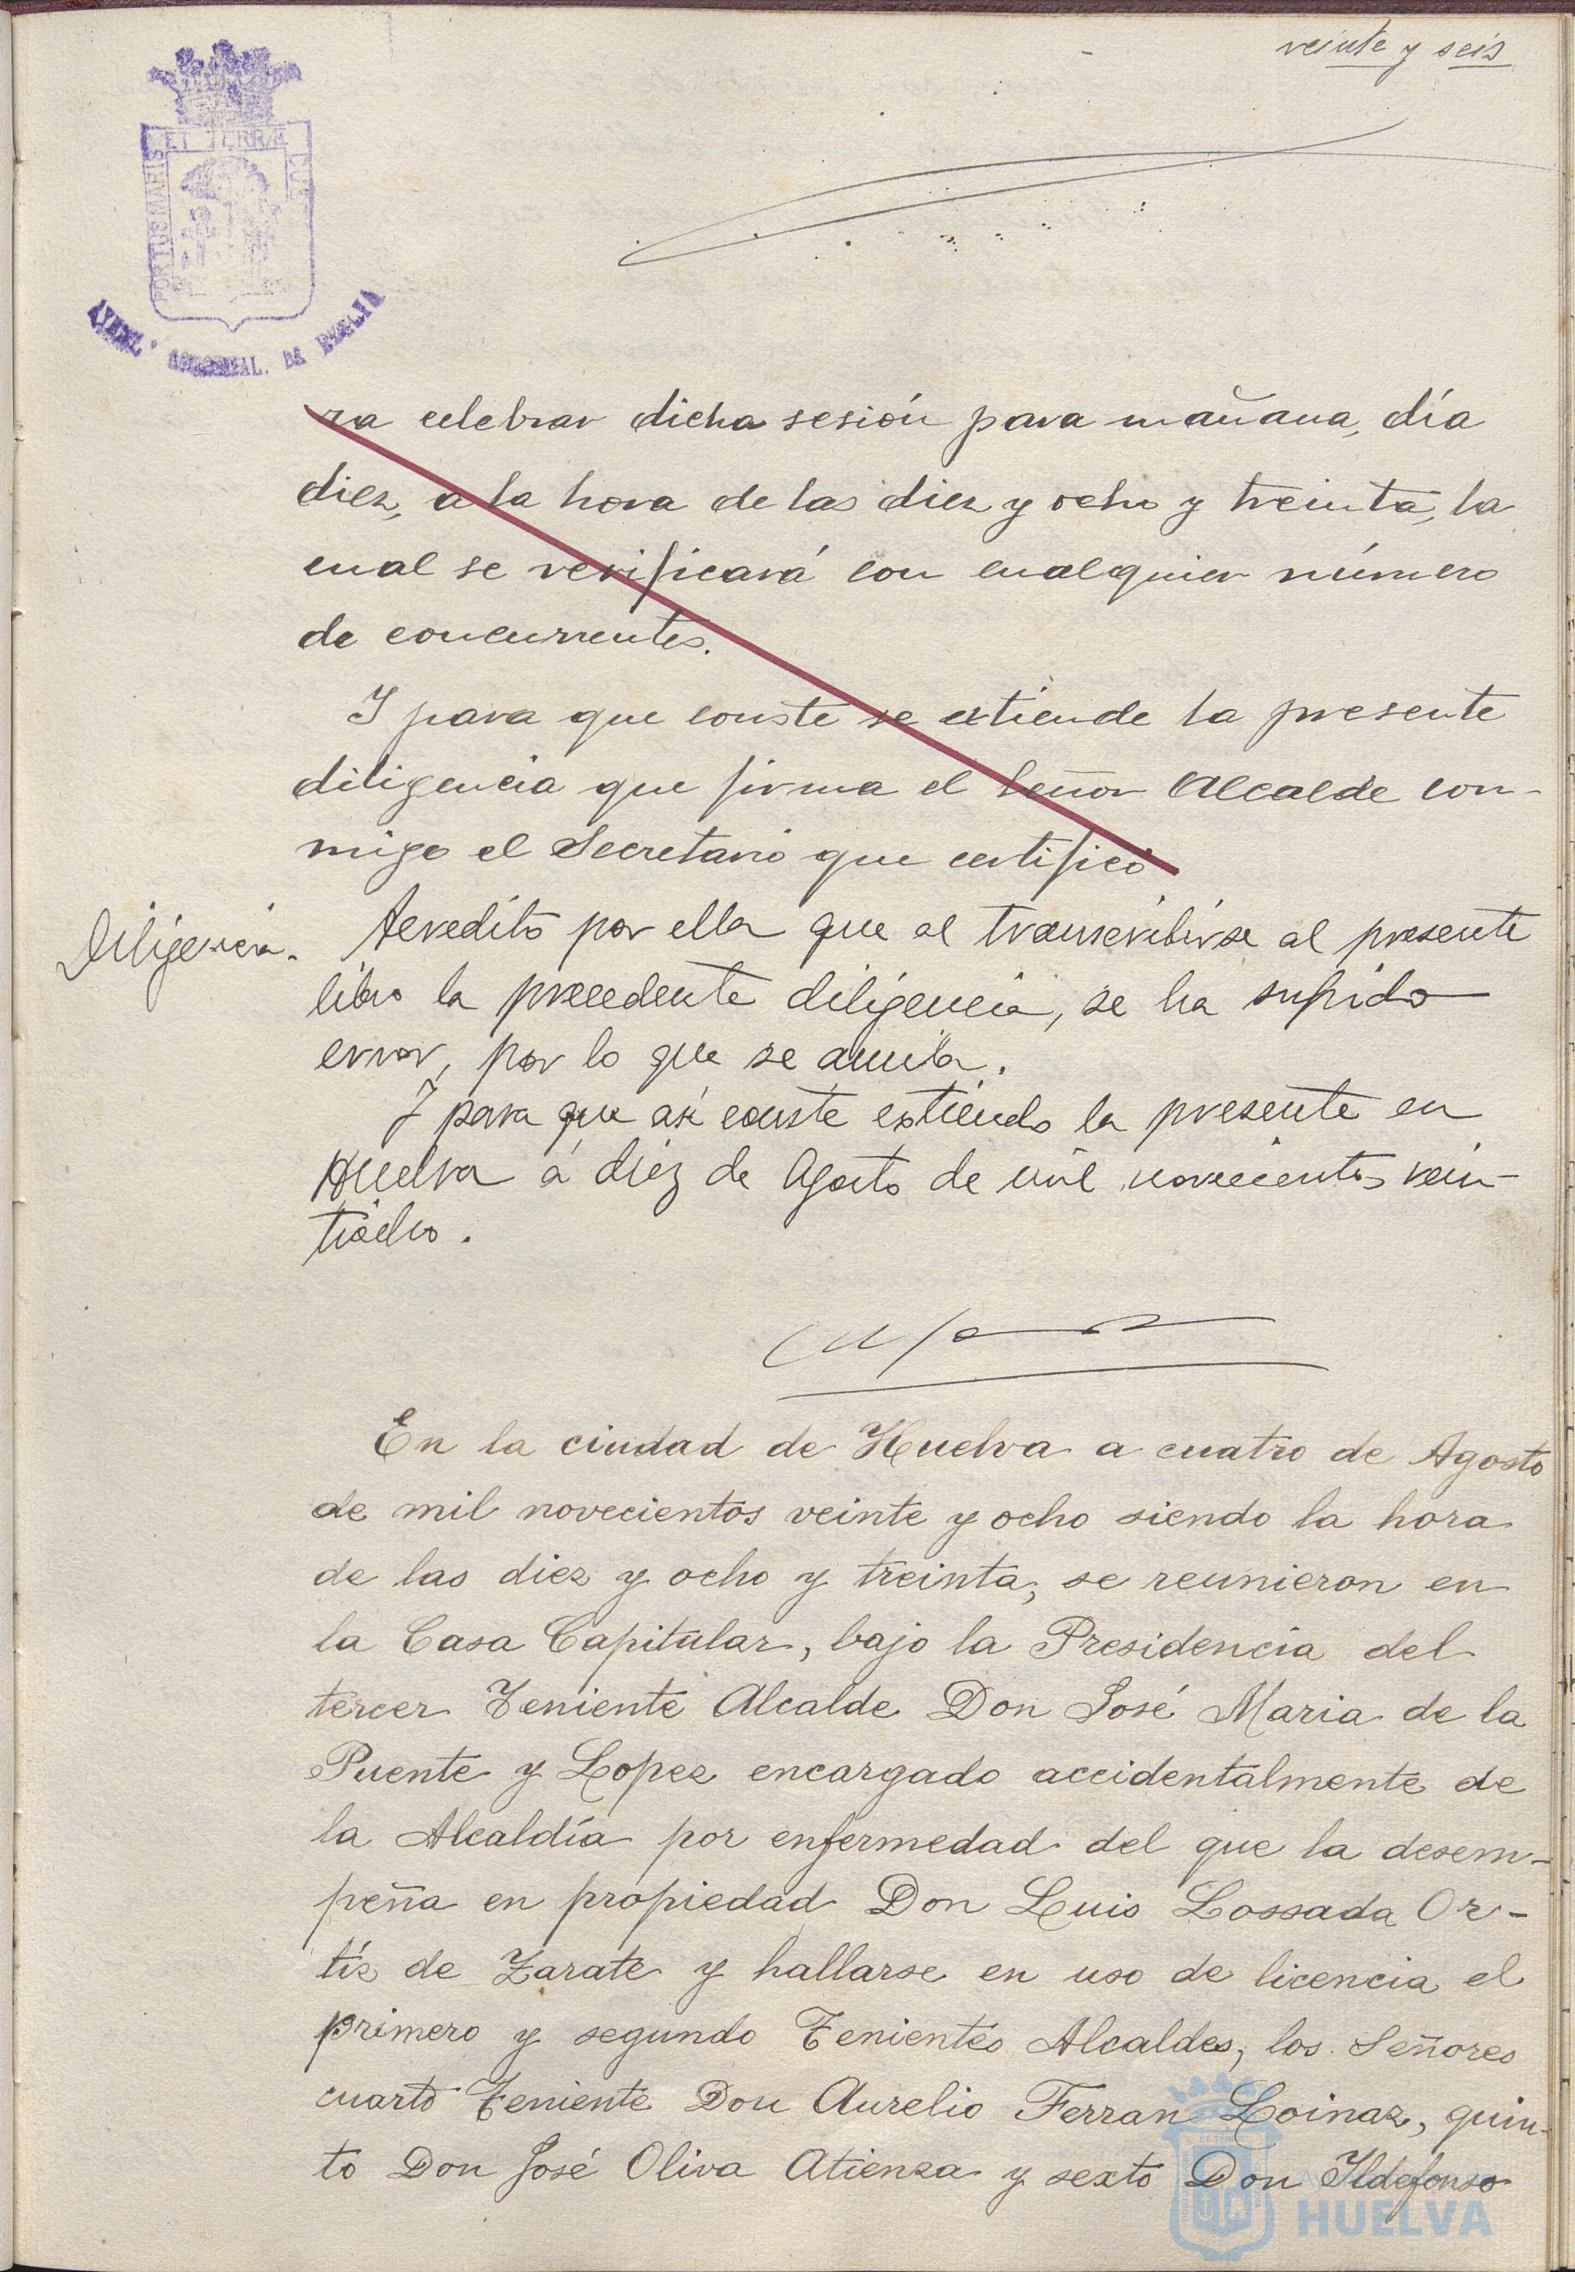 veinte y seis
PORTUS MARIS ET TERRÆ CUS
AYUNT.º CONSTNAL. DE HUELVA
ra celebrar dicha sesión para mañana, día
diez, a la hora de las diez y ocho y treinta, la
cual se verificará con cualquier número
de concurrentes.
Y para que conste se extiende la presente
diligencia que firma el Señor Alcalde con-
migo el Secretario que certifico
Diligencia. Acredito por ella que al transcribirse al presente
libro la precedente diligencia, se ha sufrido
error, por lo que se anula.
Y para que así conste extiendo la presente en
Huelva á diez de Agosto de mil novecientos vein-
tiocho.
En la ciudad de Huelva a cuatro de Agosto
de mil novecientos veinte y ocho siendo la hora
de las diez y ocho y treinta, se reunieron en
la Casa Capitular, bajo la Presidencia del
tercer Teniente Alcalde Don José Maria de la
Puente y Lopez encargado accidentalmente de
la Alcaldía por enfermedad del que la desem-
peña en propiedad Don Luis Lossada Or-
tíz de Zarate y hallarse en uso de licencia el
primero y segundo Tenientes Alcaldes, los Señores
cuarto Teniente Don Aurelio Ferran Loinaz, quin-
to Don José Oliva Atienza y sexto Don Ildefonso
HUELVA